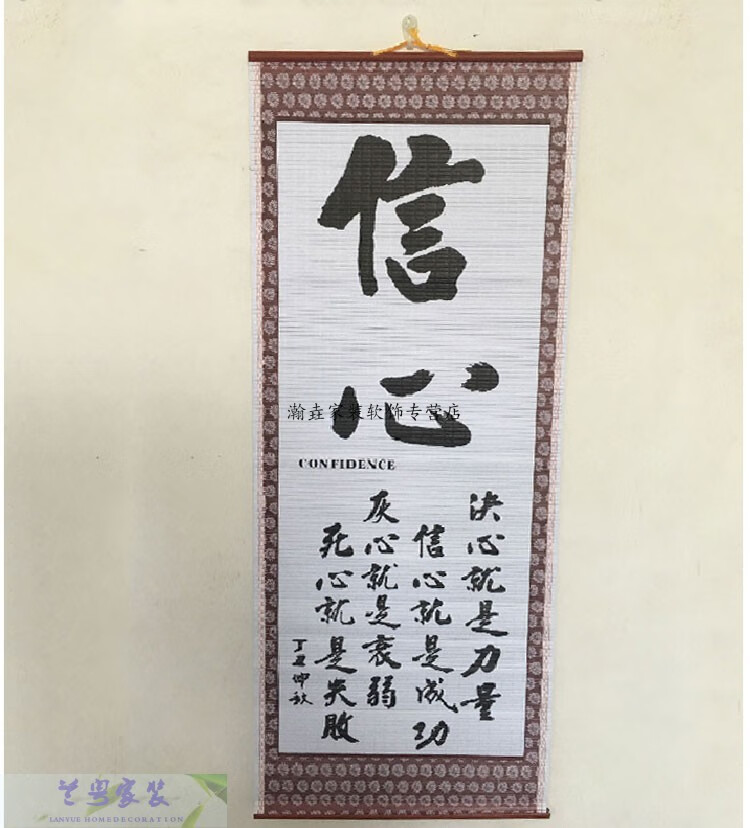 信心
瀚垚家装软饰专营店
CONFIDENCE
决心就是力量
信心就是成功
灰心就是衰弱
死心就是失败
丁丑仲秋
兰粤家装
LANYUE HOMEDECORATION